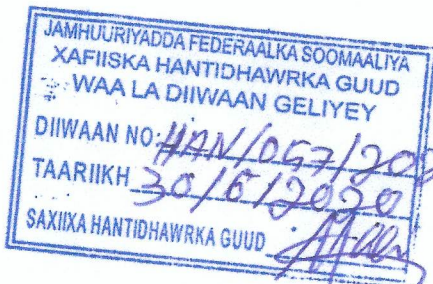 JAMHUURIYADDA FEDERAALKA SOOMAALIYA
XAFIISKA HANTIDHAWRKA GUUD
WAA LA DIIWAAN GELIYEY
DIIWAAN NO: HAN/067/202
TAARIIKH 30/6/2020
SAXIIXA HANTIDHAWRKA GUUD